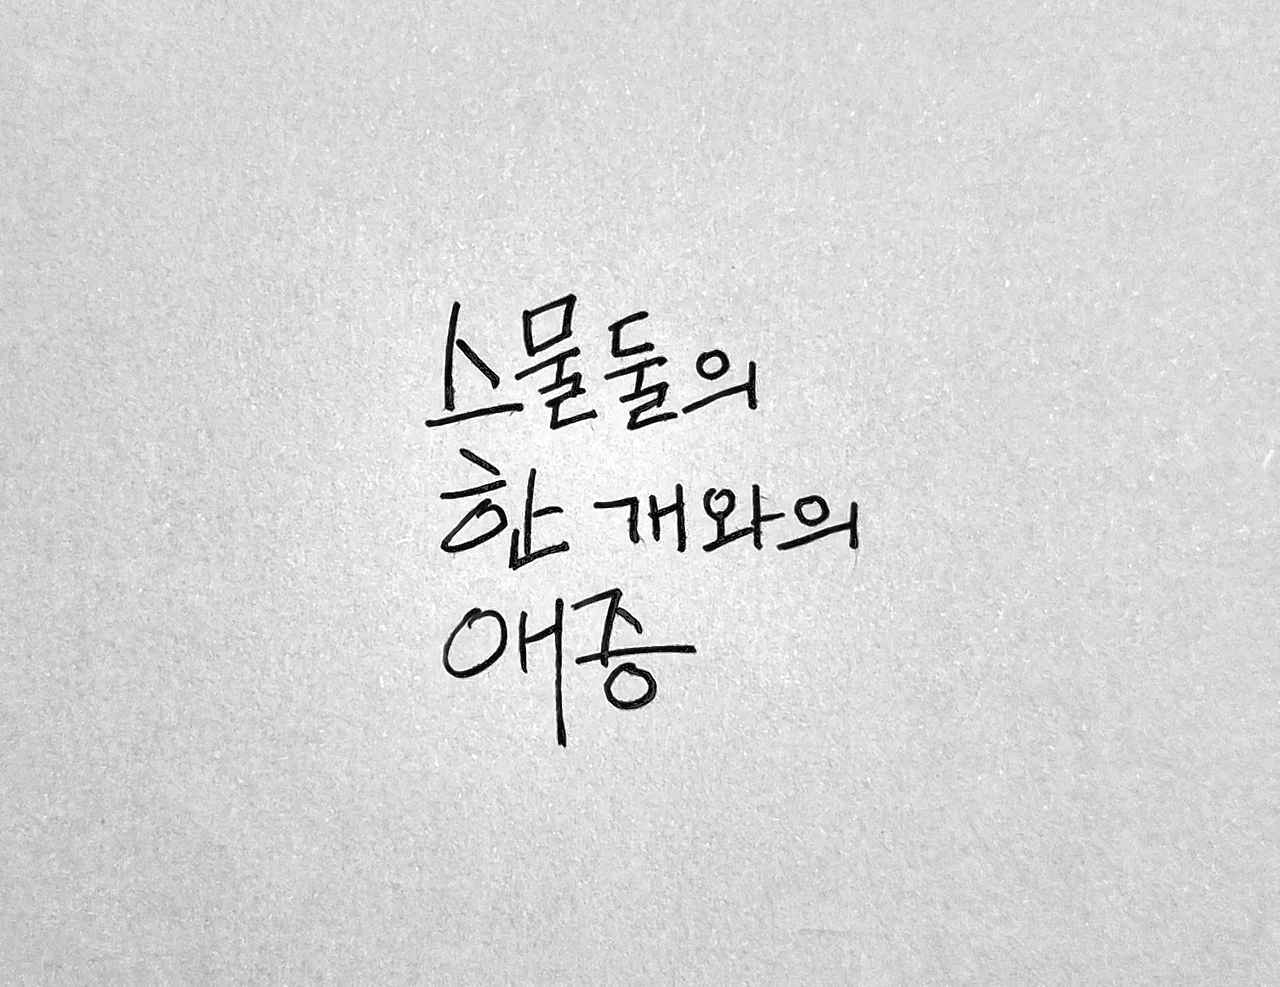 스물둘의
한 개와의
애증